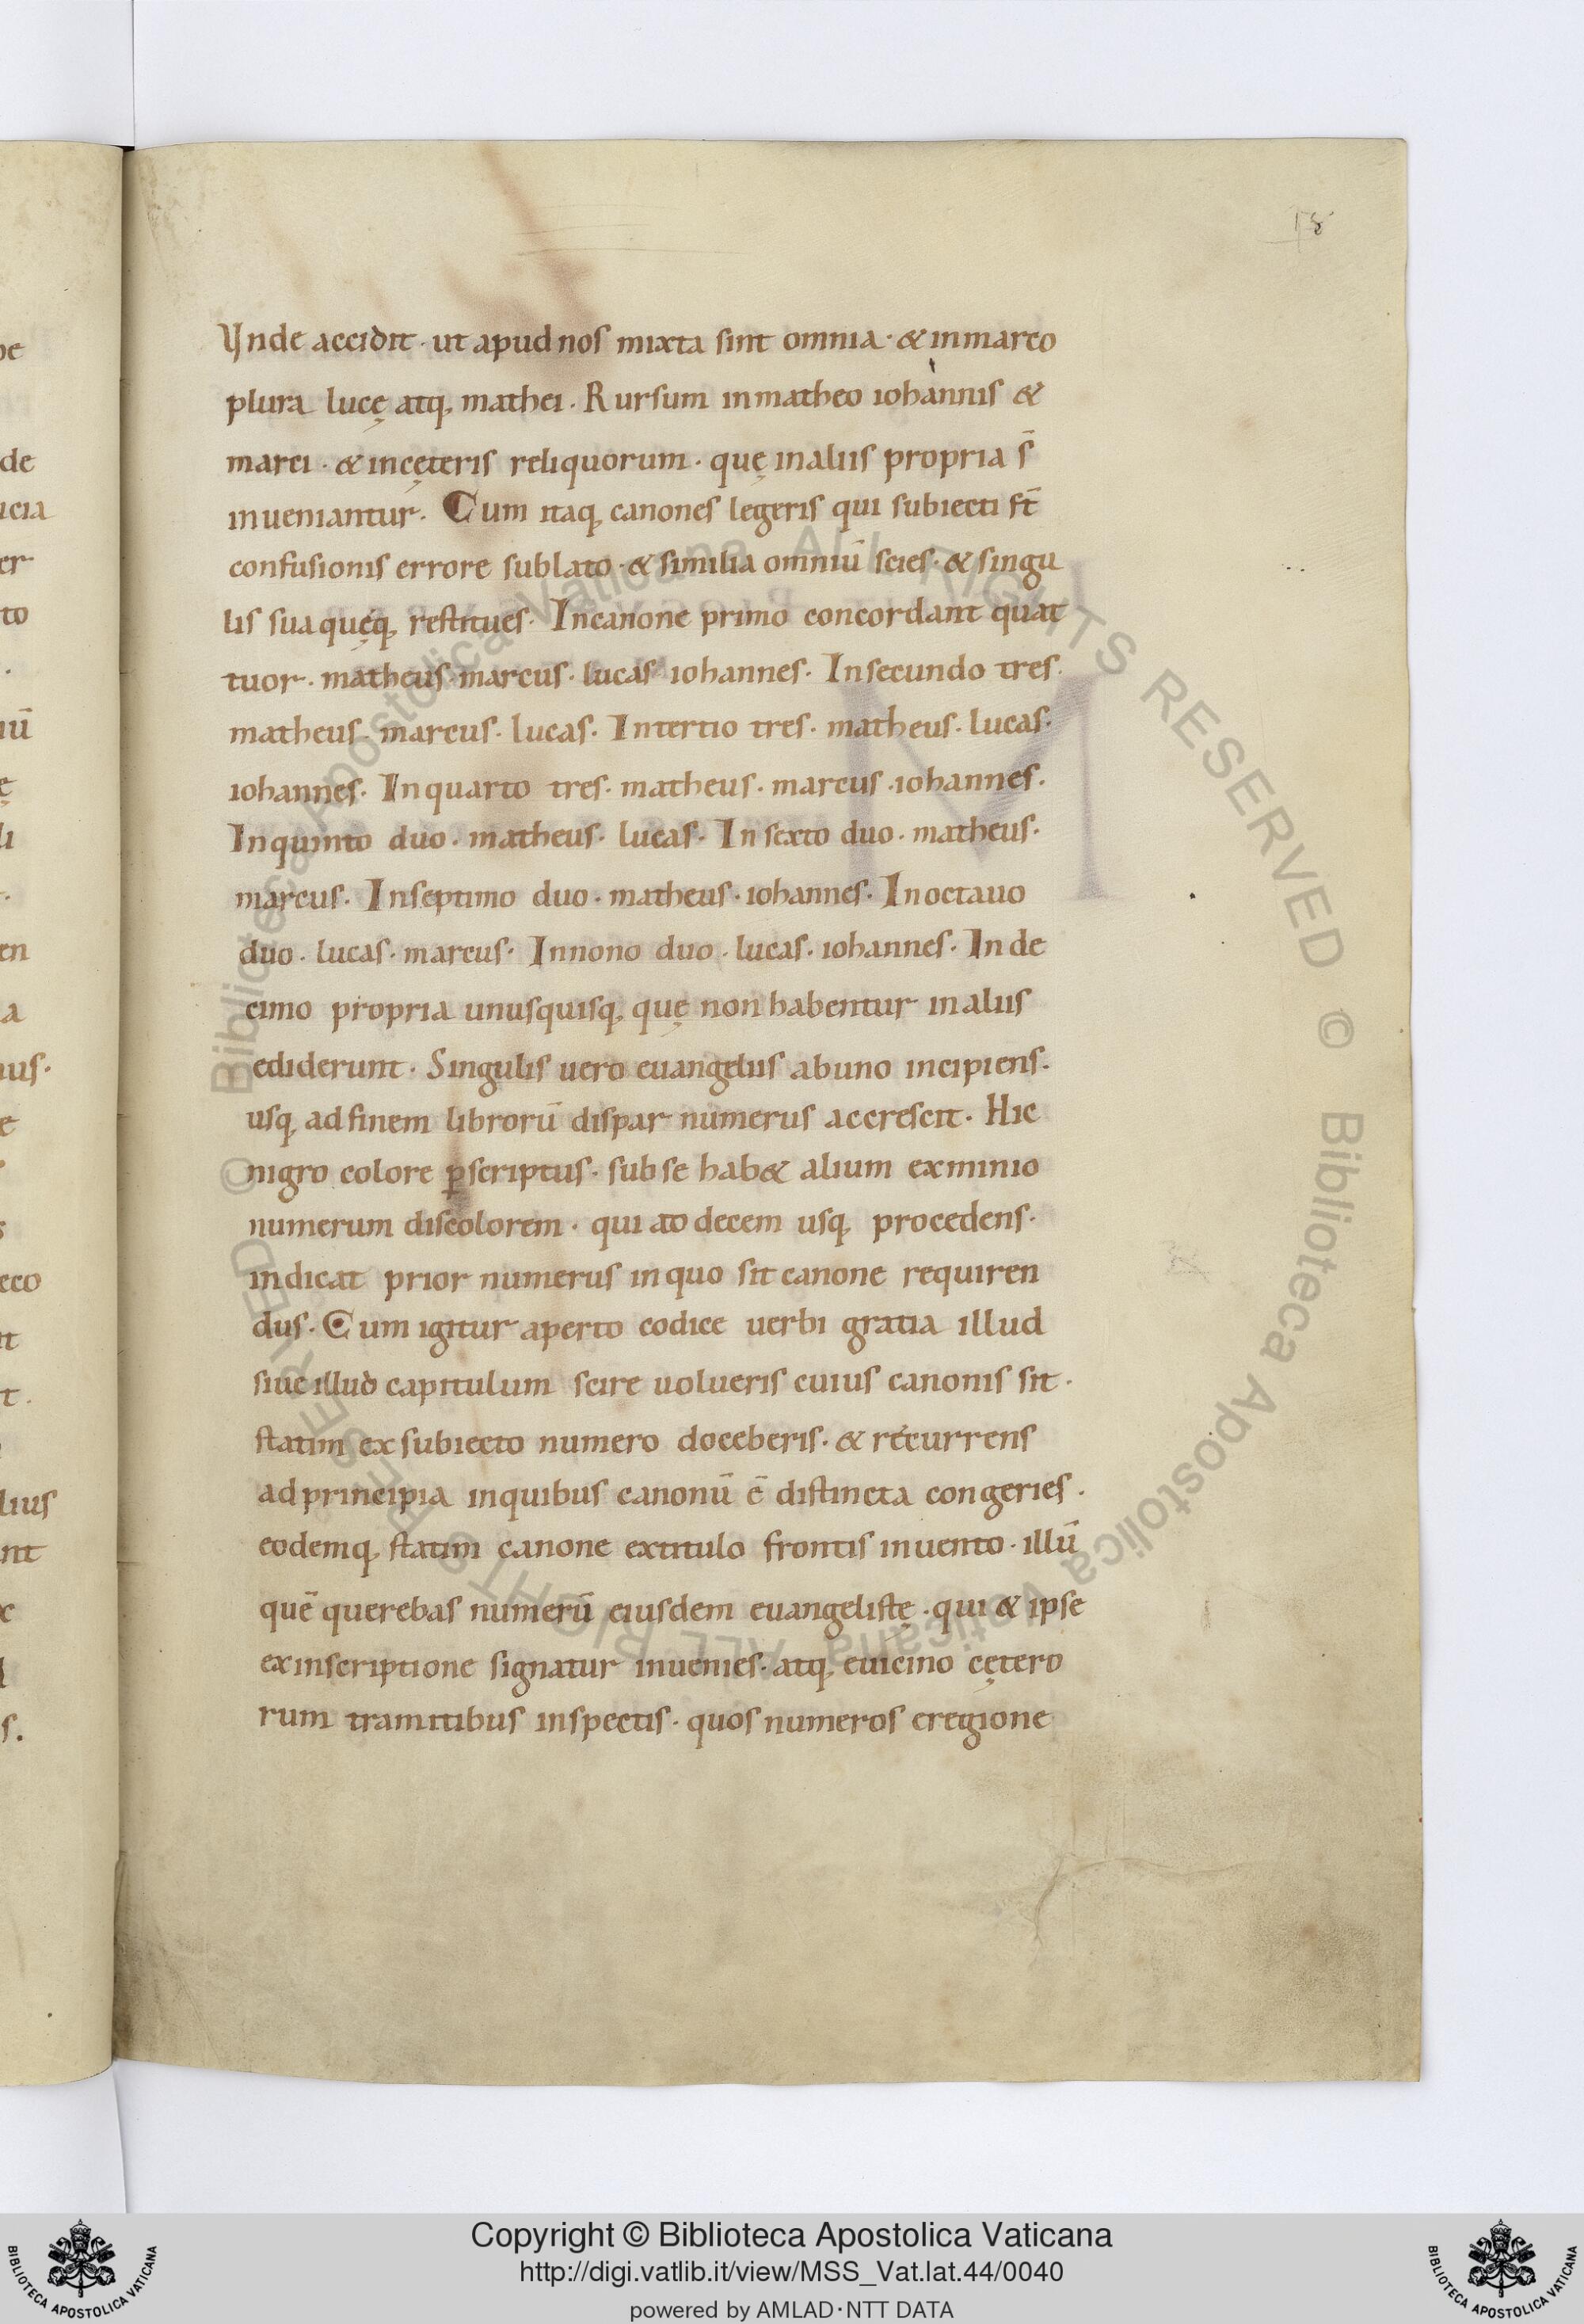 18
Vnde accidit · ut apud nos mixta sint omnia · & in marco
plura lucę atq, mathei · Rursum in matheo iohannis &
marci · & in cęteris reliquorum · quę in aliis propria s̄
inueniantur · Cum itaq, canones legeris qui subiecti st̄
confusionis errore sublato · & similia omniū scies · & singu
lis sua quęq, restitues · In canone primo concordant quat
tuor · matheus · marcus · lucas · iohannes · In secundo tres ·
matheus · marcus · lucas · In tertio tres · matheus · lucas ·
iohannes · In quarto tres · matheus · marcus · iohannes ·
In quinto duo · matheus · lucas · In sexto duo · matheus ·
marcus · In septimo duo · matheus · iohannes · In octauo
duo · lucas · marcus · In nono duo · lucas · iohannes · In de
cimo propria unusquisq, quę non habentur in aliis
ediderunt · Singulis uero euangeliis ab uno incipiens ·
usq, ad finem librorū dispar numerus accrescit · Hic
nigro colore p̲scriptus · sub se hab& alium ex minio
numerum discolorem · qui ad decem usq, procedens ·
indicat prior numerus in quo sit canone requiren
dus · Cum igitur aperto codice uerbi gratia illud
siue illud capitulum scire uolueris cuius canonis sit ·
statim ex subiecto numero doceberis · & recurrens
ad principia in quibus canonū ē distincta congeries ·
eodemq, statim canone ex titulo frontis inuento · illū
quē querebas numerū eiusdem euangelistę · qui & ipse
ex inscriptione signatur inuenies · atq, e uicino cętero
rum tramitibus inspectis · quos numeros e regione
© Biblioteca Apostolica Vaticana ALL RIGHTS RESERVED
© Biblioteca Apostolica Vaticana ALL RIGHTS RESERVED
Copyright © Biblioteca Apostolica Vaticana
http://digi.vatlib.it/view/MSS_Vat.lat.44/0040
powered by AMLAD·NTT DATA
BIBLIOTECA APOSTOLICA VATICANA
BIBLIOTECA APOSTOLICA VATICANA